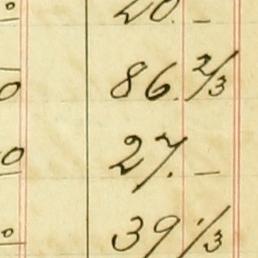 20. –
0 86. 2/3
0 27. –
39 1/3